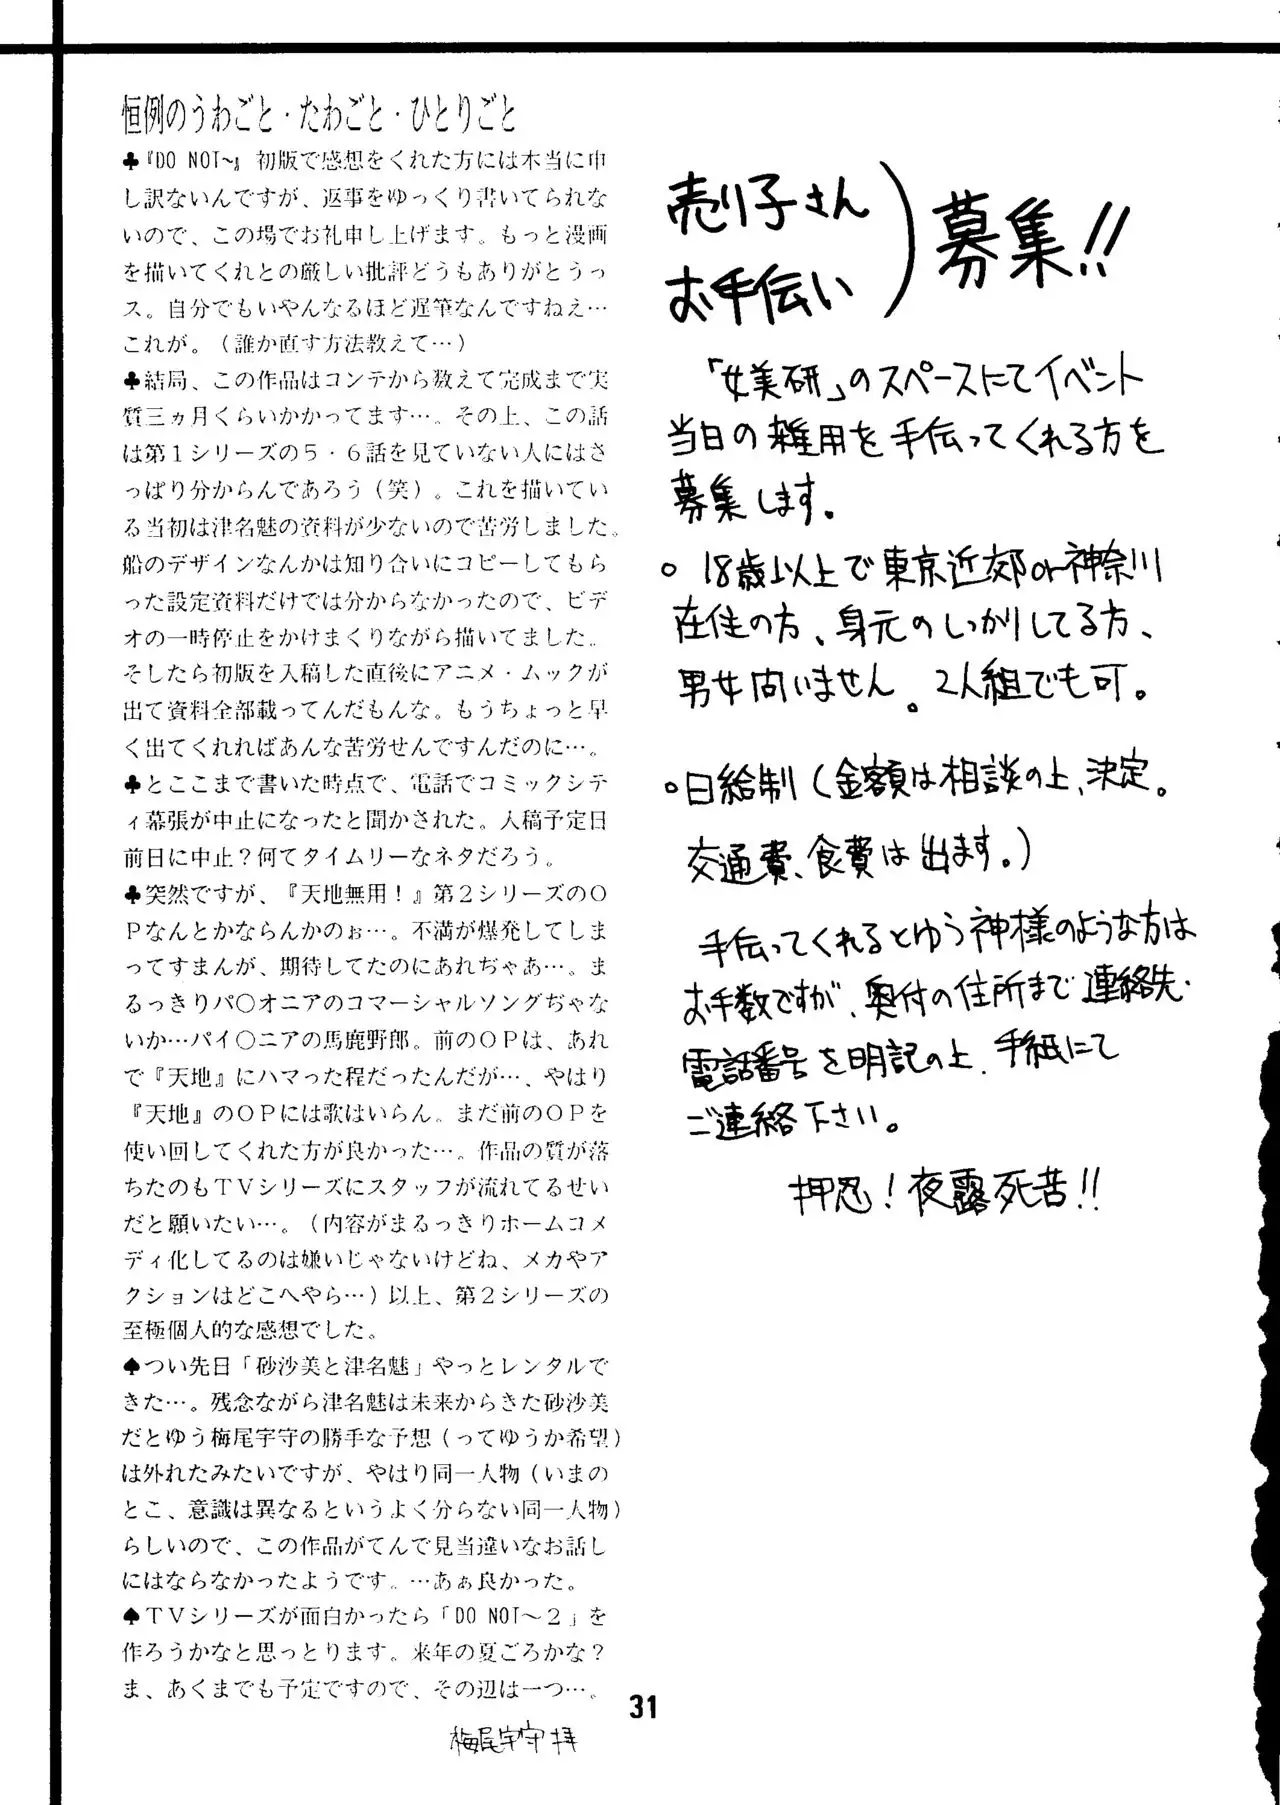 恒例のうわごと・たわごと・ひとりごと
♣『DO NOT〜』初版で感想をくれた方には本当に申
し訳ないんですが、返事をゆっくり書いてられな
いので、この場でお礼申し上げます。もっと漫画
を描いてくれとの厳しい批評どうもありがとうっ
ス。自分でもいやんなるほど遅筆なんですねえ…
これが。（誰か直す方法教えて…）
♣結局、この作品はコンテから数えて完成まで実
質三ヵ月くらいかかってます…。その上、この話
は第１シリーズの５・６話を見ていない人にはさ
っぱり分からんであろう（笑）。これを描いてい
る当初は津名魅の資料が少ないので苦労しました。
船のデザインなんかは知り合いにコピーしてもら
った設定資料だけでは分からなかったので、ビデ
オの一時停止をかけまくりながら描いてました。
そしたら初版を入稿した直後にアニメ・ムックが
出て資料全部載ってんだもんな。もうちょっと早
く出てくれればあんな苦労せんですんだのに…。
♣とここまで書いた時点で、電話でコミックシテ
ィ幕張が中止になったと聞かされた。入稿予定日
前日に中止？何てタイムリーなネタだろう。
♣突然ですが、『天地無用！』第２シリーズのＯ
Ｐなんとかならんかのぉ…。不満が爆発してしま
ってすまんが、期待してたのにあれぢゃあ…。ま
るっきりパ〇オニアのコマーシャルソングぢゃな
いか…パイ〇ニアの馬鹿野郎。前のＯＰは、あれ
で『天地』にハマった程だったんだが…、やはり
『天地』のＯＰには歌はいらん。まだ前のＯＰを
使い回してくれた方が良かった…。作品の質が落
ちたのもＴＶシリーズにスタッフが流れてるせい
だと願いたい…。（内容がまるっきりホームコメ
ディ化してるのは嫌いじゃないけどね、メカやア
クションはどこへやら…）以上、第２シリーズの
至極個人的な感想でした。
♠つい先日「砂沙美と津名魅」やっとレンタルで
きた…。残念ながら津名魅は未来からきた砂沙美
だとゆう梅尾宇守の勝手な予想（ってゆうか希望）
は外れたみたいですが、やはり同一人物（いまの
とこ、意識は異なるというよく分らない同一人物）
らしいので、この作品がてんで見当違いなお話し
にはならなかったようです。…あぁ良かった。
♠ＴＶシリーズが面白かったら「DO NOT〜２」を
作ろうかなと思っとります。来年の夏ごろかな？
ま、あくまでも予定ですので、その辺は一つ…。
梅尾宇守拝
売り子さん
お手伝い
）募集!!
「女美研」のスペースにてイベント
当日の雑用を手伝ってくれる方を
募集します。
○ 18歳以上で東京近郊or神奈川
在住の方、身元のしっかりしてる方、
男女問いません。2人組でも可。
○日給制（金額は相談の上、決定。
交通費、食費は出ます。）
手伝ってくれるとゆう神様のような方は
お手数ですが、奥付の住所まで連絡先・
電話番号を明記の上、手紙にて
ご連絡下さい。
押忍！夜露死苦!!
31